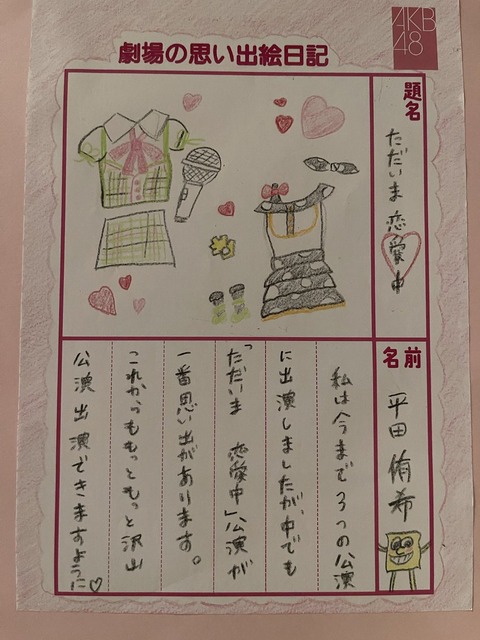 AKB
48
劇場の思い出絵日記
題名
ただいま 恋愛中
名前
平田 侑希
私は今まで3つの公演
に出演しましたが、中でも
「ただいま 恋愛中」公演が
一番思い出があります。
これからももっともっと沢山
公演出演できますように♡